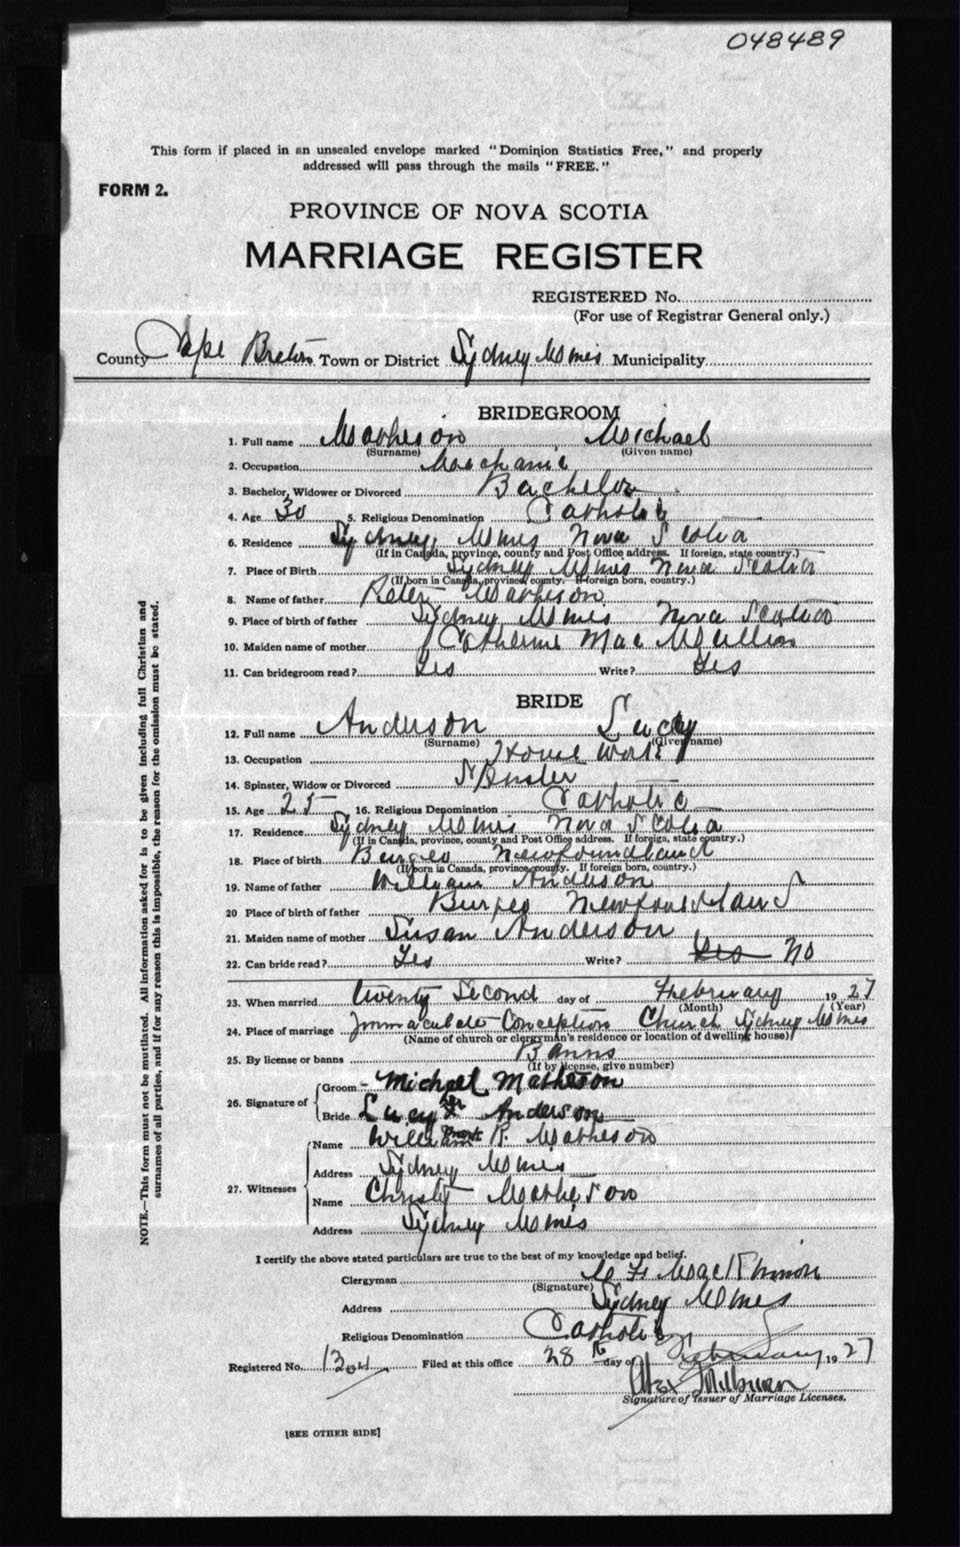 048489
This form if placed in an unsealed envelope marked "Dominion Statistics Free," and properly
addressed will pass through the mails "FREE."
FORM 2.
PROVINCE OF NOVA SCOTIA
MARRIAGE REGISTER
REGISTERED No.
(For use of Registrar General only.)
County Cape Breton Town or District Sydney Mines Municipality
BRIDEGROOM
1. Full name Matheson Michael
(Surname) (Given name)
2. Occupation Mechanic
3. Bachelor, Widower or Divorced Bachelor
4. Age 30 5. Religious Denomination Catholic
6. Residence Sydney Mines Nova Scotia
(If in Canada, province, county and Post Office address. If foreign, state country.)
7. Place of Birth Sydney Mines Nova Scotia
(If born in Canada, province, county. If foreign born, country.)
8. Name of father Peter Matheson
9. Place of birth of father Sydney Mines Nova Scotia
10. Maiden name of mother Catherine Mac Mullin
11. Can bridegroom read? Yes Write? Yes
BRIDE
12. Full name Anderson Lucy
(Surname) (Given name)
13. Occupation House work
14. Spinster, Widow or Divorced Spinster
15. Age 25 16. Religious Denomination Catholic
17. Residence Sydney Mines Nova Scotia
(If in Canada, province, county and Post Office address. If foreign, state country.)
18. Place of birth Burgeo Newfoundland
(If born in Canada, province, county. If foreign born, country.)
19. Name of father William Anderson
20 Place of birth of father Burgeo Newfoundland
21. Maiden name of mother Susan Anderson
22. Can bride read? Yes Write? Yes No
23. When married twenty Second day of February 1927
(Month) (Year)
24. Place of marriage Immaculate Conception Church Sydney Mines
(Name of church or clergyman's residence or location of dwelling house)
25. By license or banns Banns
(If by license, give number)
26. Signature of
Groom Michael Matheson
Bride Lucy X Anderson
27. Witnesses
Name R. Matheson
Address Sydney Mines
Name Matheson
Address Sydney Mines
I certify the above stated particulars are true to the best of my knowledge and belief.
Clergyman MacKinnon
(Signature)
Address Sydney Mines
Religious Denomination Catholic
Registered No. Filed at this office 28th day of February, 1927
Signature of Issuer of Marriage Licenses.
[SEE OTHER SIDE]
NOTE.—This form must not be mutilated. All information asked for is to be given including full Christian and
surnames of all parties, and if for any reason this is impossible, the reason for the omission must be stated.